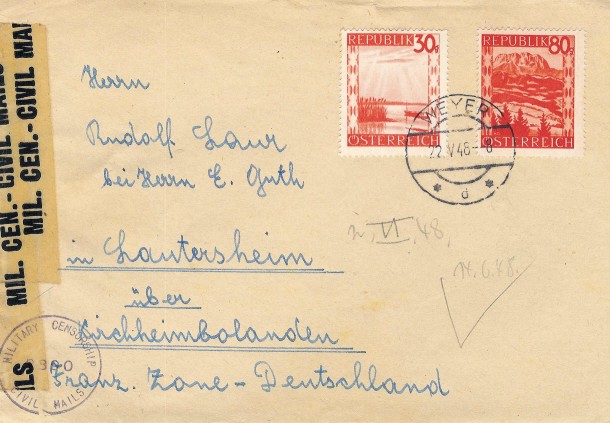 REPUBLIK 30g
ÖSTERREICH
REPUBLIK 80g
ÖSTERREICH
WEYER
22.V48-8
* d *
Herrn
Rudolf Laur
bei Herrn E. Guth
in Lautersheim
über
Kirchheimbolanden
Franz. Zone - Deutschland
VI, 48,
14.6.48.
MIL. CEN. - CIVIL MAILS
MIL. CEN. - CIVIL MAI
ILS
MILITARY CENSORSHIP
CIVIL MAILS